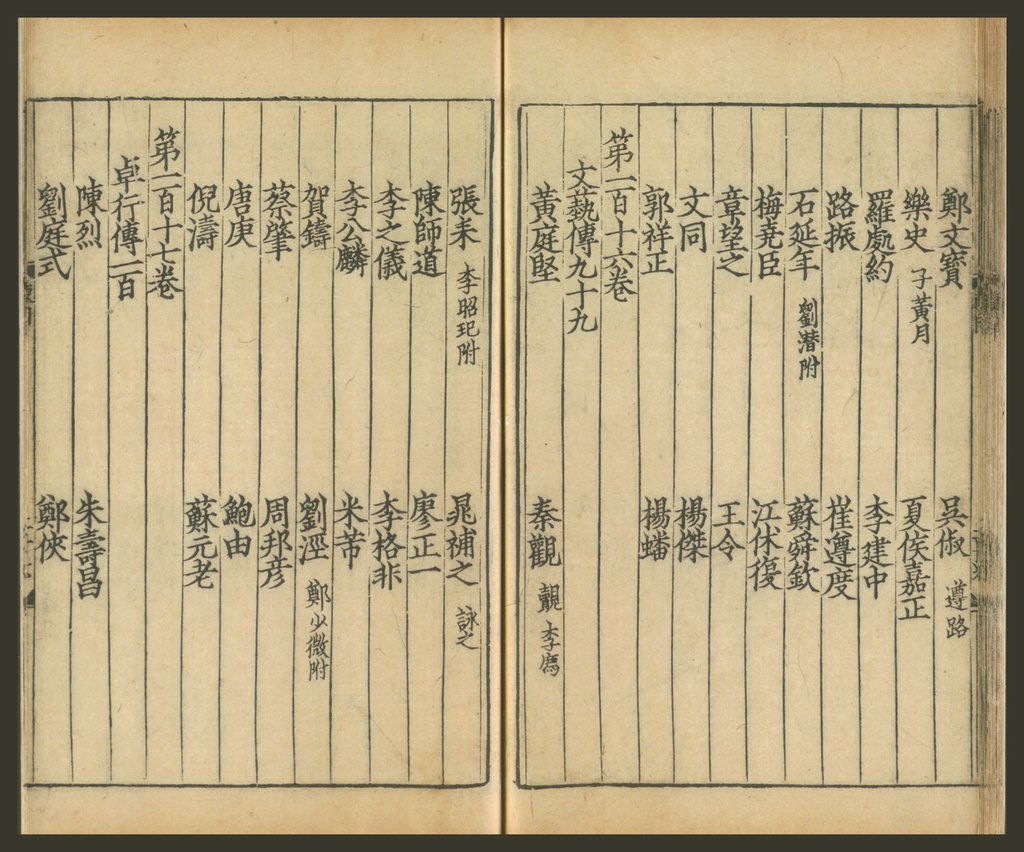 鄭文寶 吳俶 遵路
樂史 子黃月 夏侯嘉正
羅處約 李建中
路振 崔遵度
石延年 劉潛附 蘇舜欽
梅堯臣 江休復
章望之 王令
文同 楊傑
郭祥正 楊蟠
第一百十六卷
文藝傳九十九
黃庭堅 秦觀 覯 李廌
張耒 李昭玘附 晁補之 詠之
陳師道 廖正一
李之儀 李格非
李公麟 米芾
賀鑄 劉涇 鄭少微附
蔡肇 周邦彥
唐庚 鮑由
倪濤 蘇元老
第一百十七卷
卓行傳一百
陳烈 朱壽昌
劉庭式 鄭俠